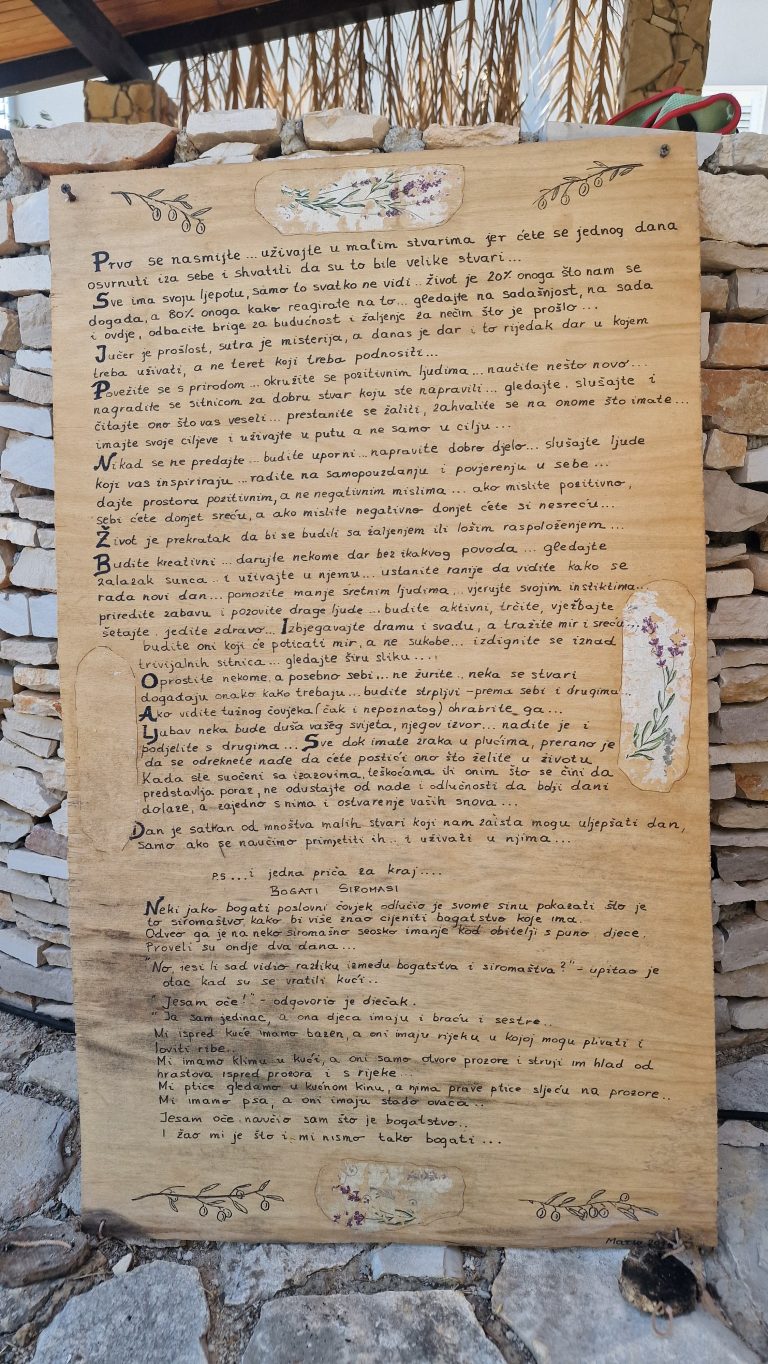 Prvo se nasmijte ... uživajte u malim stvarima jer ćete se jednog dana
osvrnuti iza sebe i shvatiti da su to bile velike stvari ...
Sve ima svoju ljepotu, samo to svatko ne vidi .. život je 20% onoga što nam se
događa, a 80% onoga kako reagirate na to... gledajte na sadašnjost, na sada
i ovdje, odbacite brige za budućnost i žaljenje za nečim što je prošlo ...
Jučer je prošlost, sutra je misterija, a danas je dar i to rijedak dar u kojem
treba uživati, a ne teret koji treba podnositi...
Povežite se s prirodom ... okružite se pozitivnim ljudima ... naučite nešto novo ...
nagradite se sitnicom za dobru stvar koju ste napravili ... gledajte, slušajte i
čitajte ono što vas veseli ... prestanite se žaliti, zahvalite se na onome što imate...
imajte svoje ciljeve i uživajte u putu a ne samo u cilju ...
Nikad se ne predajte ... budite uporni ... napravite dobro djelo... slušajte ljude
koji vas inspiriraju ... radite na samopouzdanju i povjerenju u sebe ...
dajte prostora pozitivnim, a ne negativnim mislima ... ako mislite pozitivno,
sebi ćete donjet sreću, a ako mislite negativno donjet ćete si nesreću...
Život je prekratak da bi se budili sa žaljenjem ili lošim raspoloženjem ...
Budite kreativni ... darujte nekome dar bez ikakvog povoda ... gledajte
zalazak sunca .. i uživajte u njemu ... ustanite ranije da vidite kako se
rađa novi dan... pomozite manje sretnim ljudima ... vjerujte svojim instiktima...
priredite zabavu i pozovite drage ljude ... budite aktivni, trčite, vježbajte
šetajte, jedite zdravo... Izbjegavajte dramu i svađu, a tražite mir i sreću...
budite oni koji će poticati mir, a ne sukobe... izdignite se iznad
trivijalnih sitnica ... gledajte širu sliku ....
Oprostite nekome, a posebno sebi... ne žurite.. neka se stvari
događaju onako kako trebaju... budite strpljivi - prema sebi i drugima...
Ako vidite tužnog čovjeka (čak i nepoznatog) ohrabrite ga ...
Ljubav neka bude duša vašeg svijeta, njegov izvor... nađite je i
podjelite s drugima ... Sve dok imate zraka u plućima, prerano je
da se odreknete nade da ćete postići ono što želite u životu
Kada ste suočeni sa izazovima, teškoćama ili onim što se čini da
predstavlja poraz, ne odustajte od nade i odlučnosti da bolji dani
dolaze, a zajedno s njima i ostvarenje vaših snova ...
Dan je satkan od mnoštva malih stvari koji nam zaista mogu uljepšati dan,
samo ako se naučimo primjetiti ih... i uživati u njima ...
PS ... i jedna priča za kraj ....
BOGATI SIROMASI
Neki jako bogati poslovni čovjek odlučio je svome sinu pokazati što je
to siromaštvo kako bi više znao cijeniti bogatstvo koje ima.
Odveo ga je na neko siromašno seosko imanje kod obitelji s puno djece.
Proveli su ondje dva dana ...
"No, jesi li sad vidio razliku između bogatstva i siromaštva?" - upitao je
otac kad su se vratili kući..
"Jesam oče!" - odgovorio je dječak.
"Ja sam jedinac, a ona djeca imaju i braću i sestre..
Mi ispred kuće imamo bazen, a oni imaju rijeku u kojoj mogu plivati i
loviti ribe...
Mi imamo klimu u kući, a oni samo otvore prozore i struji im hlad od
hrastova ispred prozora i s rijeke..
Mi ptice gledamo u kućnom kinu, a njima prave ptice slijeću na prozore..
Mi imamo psa, a oni imaju stado ovaca..
Jesam oče naučio sam što je bogatstvo..
I žao mi je što i mi nismo tako bogati ...